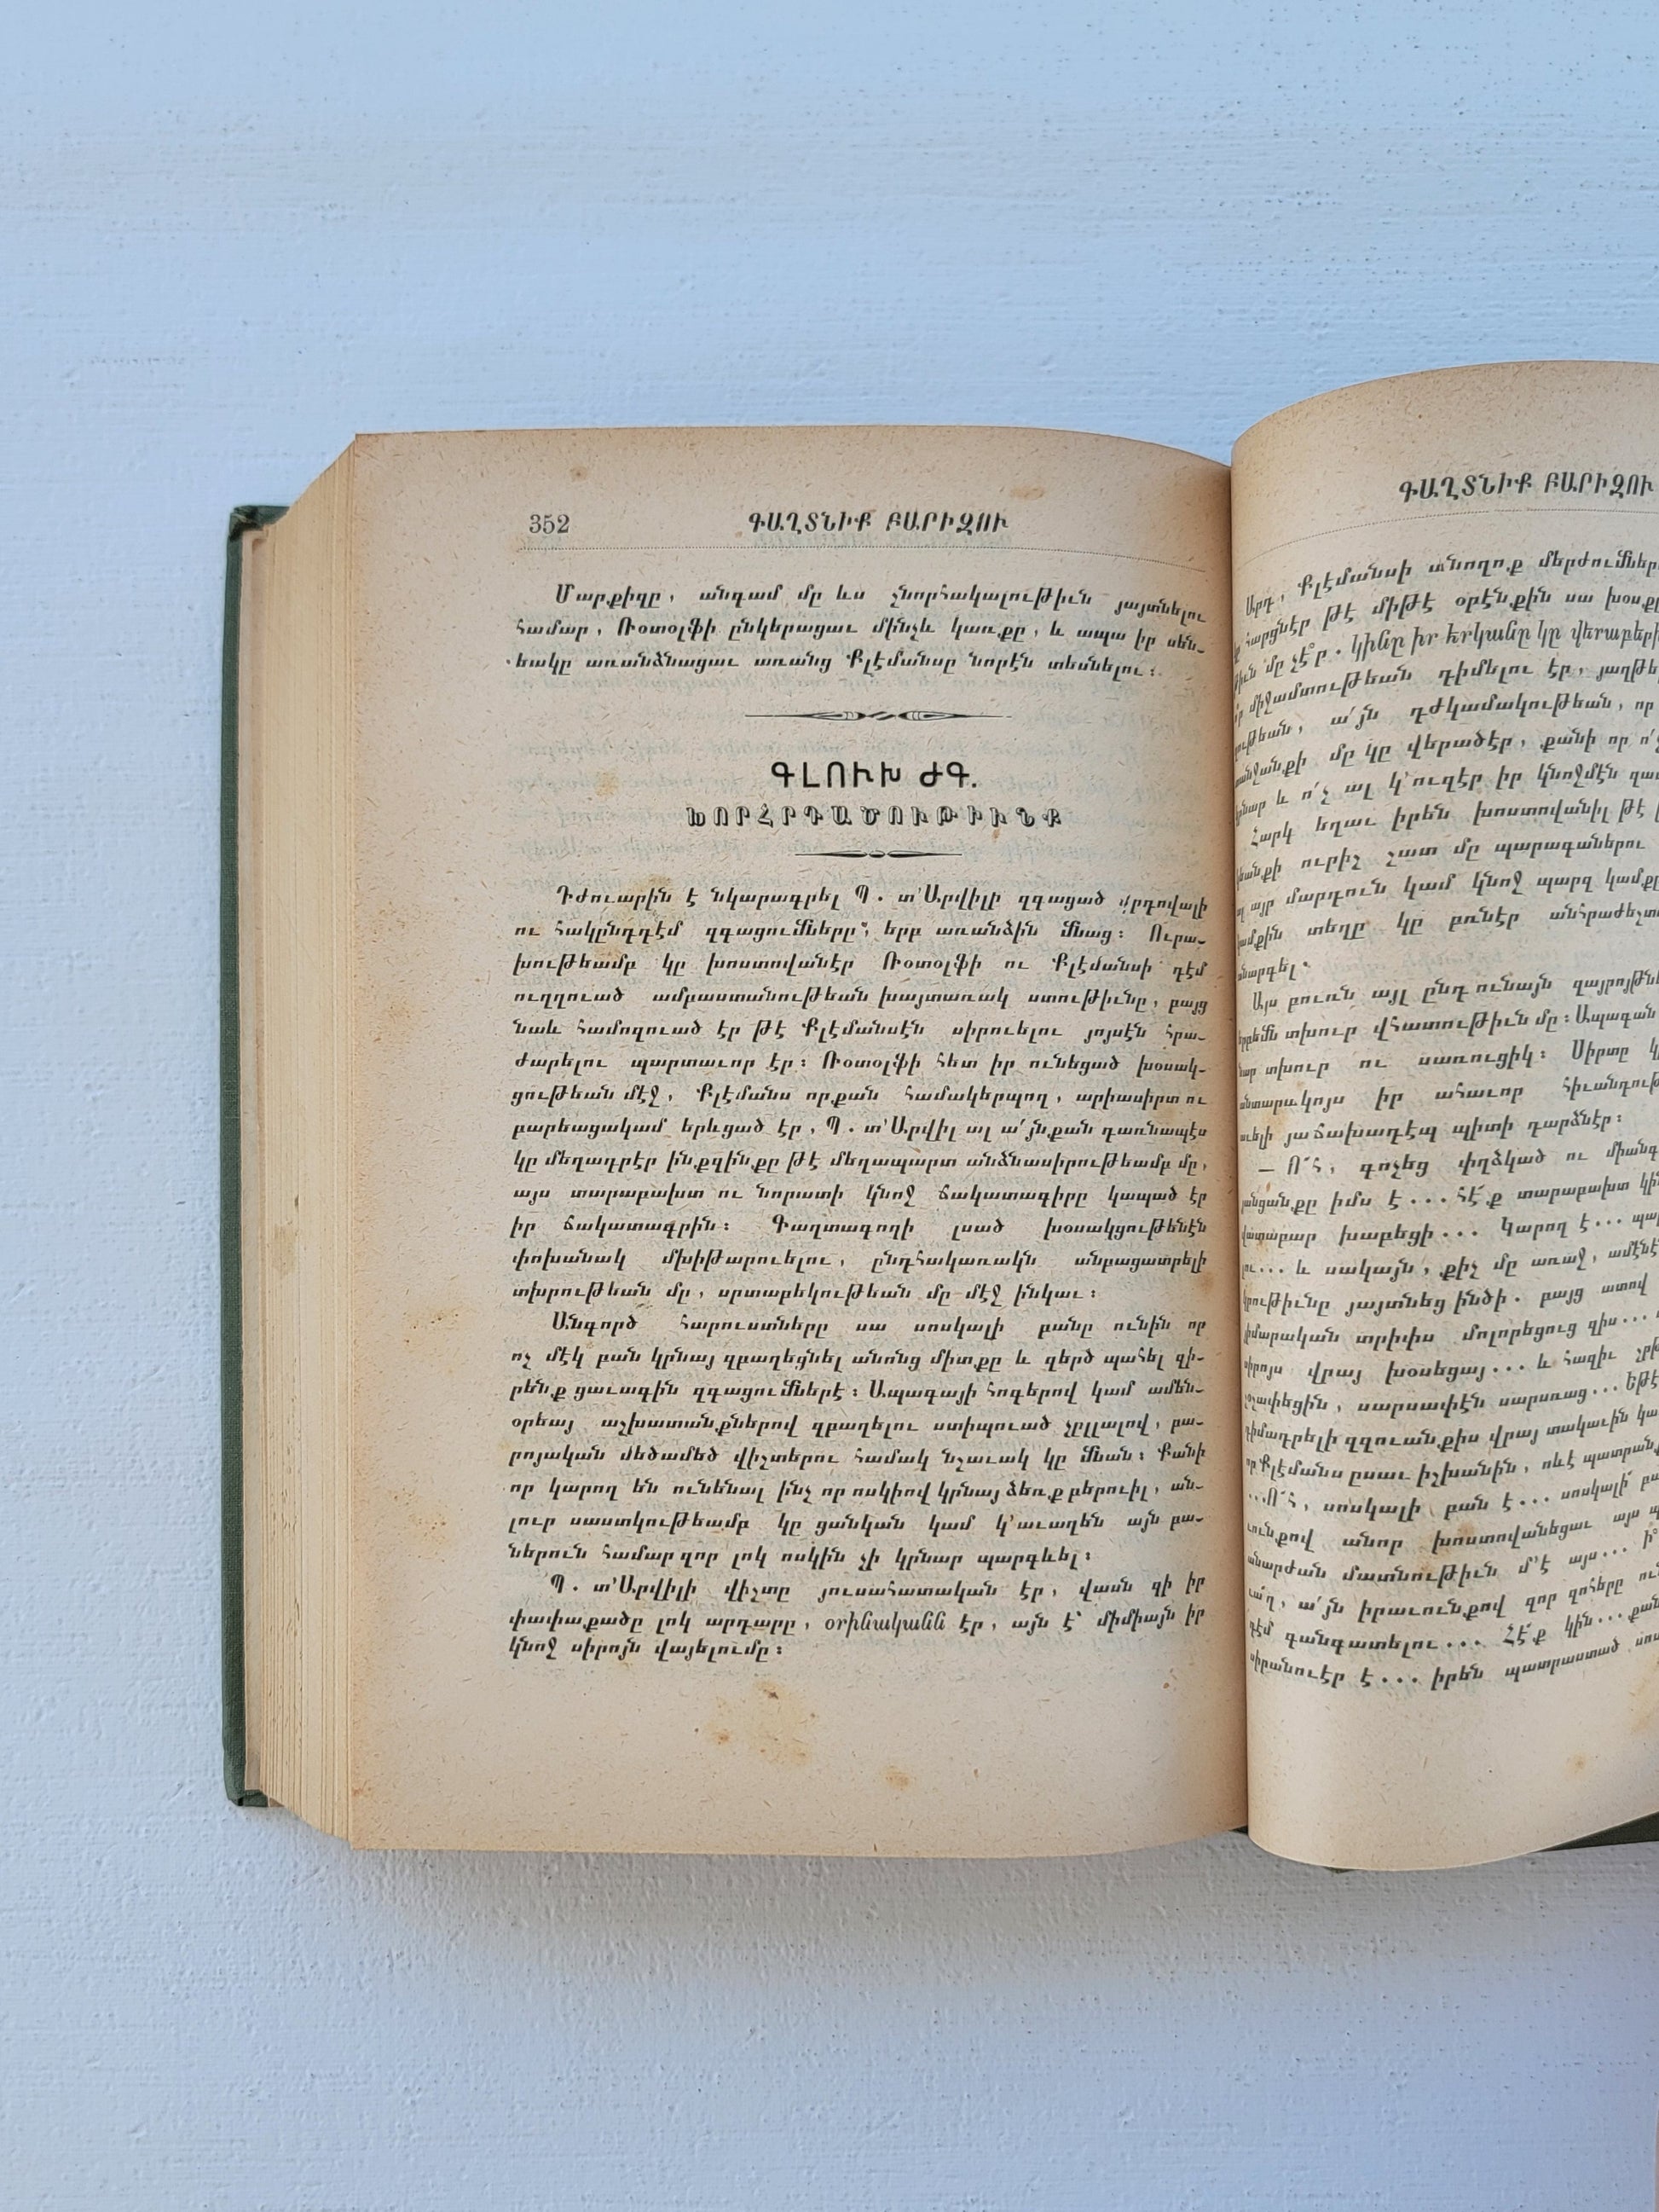 352
ԳԱՂՏՆԻՔ ԲԱՐԻԶՈՒ
Մարքիզը, անգամ մը ևս շնորհակալութիւն յայտնելու
համար, Ռօտօլֆի ընկերացաւ մինչև կառքը, և ապա իր սեն-
եակը առանձնացաւ առանց Քլէմանսը նորէն տեսնելու։
ԳԼՈՒԽ ԺԳ.
ԽՈՐՀՐԴԱԾՈՒԹԻՒՆՔ
Դժուարին է նկարագրել Պ. տ՚Արվիլի զգացած վրդովալի
ու հակընդդէմ զգացումները, երբ առանձին մնաց։ Ուրա-
խութեամբ կը խոստովանէր Ռօտօլֆի ու Քլէմանսի դէմ
ուղղուած ամբաստանութեան խայտառակ ստութիւնը, բայց
նաև համոզուած էր թէ Քլէմանսէն սիրուելու յոյսէն հրա-
ժարելու պարտաւոր էր։ Ռօտօլֆի հետ իր ունեցած խօսակ-
ցութեան մէջ, Քլէմանս որքան համակերպող, արիասիրտ ու
բարեացակամ երևցած էր, Պ. տ՚Արվիլ ալ ա՛յնքան դառնապէս
կը մեղադրէր ինքզինքը թէ մեղապարտ անձնասիրութեամբ մը,
այս տարաբախտ ու նորատի կնոջ ճակատագիրը կապած էր
իր ճակատագրին։ Գաղտագողի լսած խօսակցութենէն
փոխանակ մխիթարուելու, ընդհակառակն անբացատրելի
տխրութեան մը, սրտաբեկութեան մը մէջ ինկաւ։
Անգործ հարուստները սա սոսկալի բանը ունին որ
ոչ մէկ բան կրնայ զբաղեցնել անոնց միտքը և զերծ պահել զի-
րենք ցաւագին զգացումներէ։ Ապագայի հոգերով կամ ամեն-
օրեայ աշխատանքներով զբաղելու ստիպուած չըլլալով, բա-
րոյական մեծամեծ վիշտերու համակ նշաւակ կը մնան։ Քանի
որ կարող են ունենալ ինչ որ ոսկիով կրնայ ձեռք բերուիլ, ան-
լուր սաստկութեամբ կը ցանկան կամ կ՚աւաղեն այն բա-
ներուն համար զոր լոկ ոսկին չի կրնար պարգևել։
Պ. տ՚Արվիլի վիշտը յուսահատական էր, վասն զի իր
փափաքածը լոկ արդարը, օրինականն էր, այն է՝ միմիայն իր
կնոջ սիրոյն վայելումը։
ԳԱՂՏՆԻՔ ԲԱՐԻԶՈՒ
Արդ, Քլէմանսի անողոք մերժումներ
հարցնէր թէ միթէ օրէնքին սա խօսքը
մը չէ՞ր. կինը իր երկանը կը վերաբերի
միջամտութեան դիմելու էր, յաղթե
ա՛յն դժկամակութեան, որ
մը կը վերածէր, քանի որ ո՛չ
և ո՛չ ալ կ՚ուզէր իր կնոջմէն զատ
Հարկ եղաւ իրեն խոստովանիլ թէ
ուրիշ շատ մը պարագաներու
այր մարդուն կամ կնոջ պարզ կամքը
տեղը կը բռնէր անհրաժեշտ
Այս բուռն այլ ընդունայն զայրոյթն
տխուր վհատութիւն մը։ Ապագան
տխուր ու սառուցիկ։ Սիրտը
իր ահաւոր հիւանդութ
յաճախադէպ պիտի դարձնէր։
— Ո՜հ, գոչեց փղձկած ու միանգ
իմս է... հէ՜ք տարաբախտ կին
խաբեցի... Կարող է...
և սակայն, քիչ մը առաջ, ամէնէ
յայտնեց ինծի. բայց ատով
տրիփս մոլորեցուց զիս...
վրայ խօսեցայ... և հազիւ
սարսափէն սարսռաց... եթէ
զզուանքիս վրայ տակաւին կա
որ Քլէմանս ըսաւ իշխանին, ոևէ պատրանք
...Ո՜հ, սոսկալի բան է... սոսկալի՜ բա
անոր խոստովանեցաւ այս
մատնութիւն մ՚է այս...
ա՛յն իրաւունքով զոր զոհերը ու
դէմ գանգատելու... Հէ՜ք կին... քան
է... իրեն պատրաստած